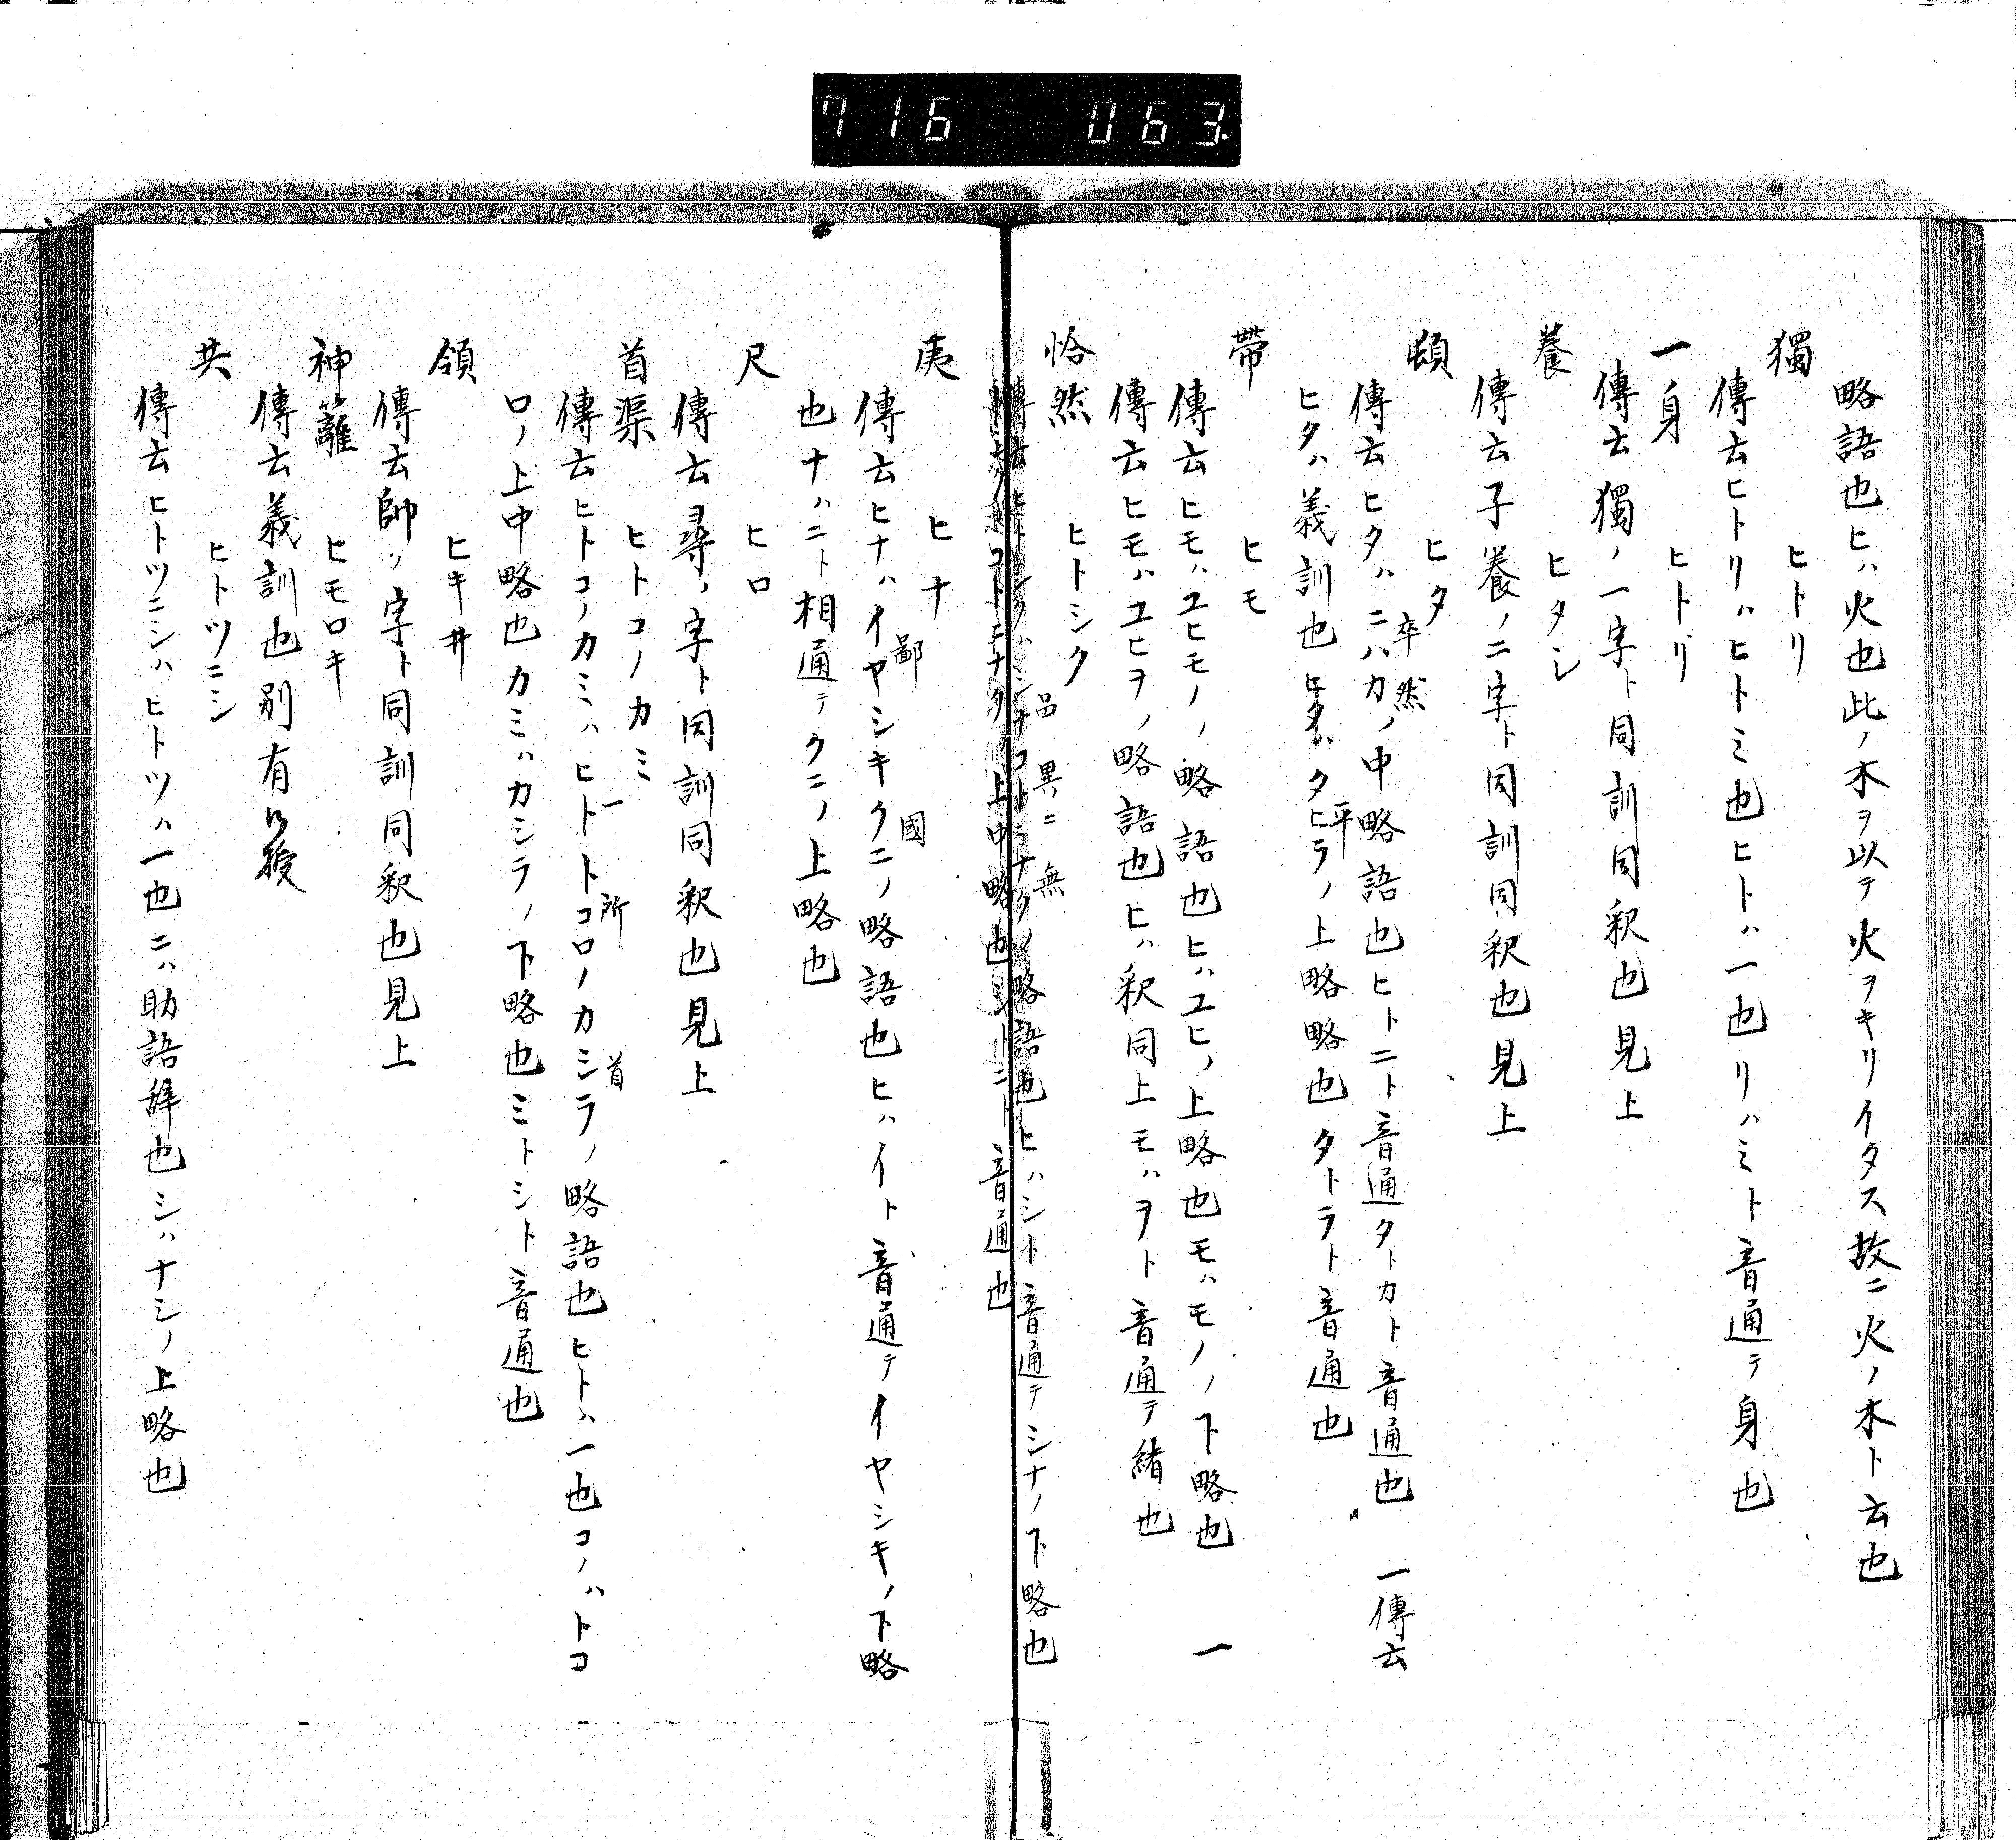 716 063
略語也ヒハ火也此ノ木ヲ以テ火ヲキリイタス故ニ火ノ木ト云也
獨 ヒトリ
傳云ヒトリハヒトミ也ヒトハ一也リハミト音通テ身也
一身 ヒトリ
傳云獨ノ一字ト同訓同釈也見上
養 ヒタシ
傳云子養ノ二字ト同訓同釈也見上
頓 ヒタ
卒然
傳云ヒタハニハカノ中略語也ヒトニト音通タトカト音通也 一傳云
ヒタハ義訓也 タヒラノ上略略也タトラト音通也
平
帶 ヒモ
傳云ヒモハユヒモノノ略語也ヒハユヒノ上略也モハモノノ下略也 一
傳云ヒモハユヒヲノ略語也ヒハ釈同上モハヲト音通テ緒也
恰然 ヒトシク
品 異ニ 無
傳云ヒトシクハシナコトニナクノ略語也ヒハシト音通テシナノ下略也
コトニナク上中略也 ニト音通也
夷 ヒナ
鄙 國
傳云ヒナハイヤシキクニノ略語也ヒハイト音通テイヤシキノ下略
也ナハニト相通テクニノ上略也
尺 ヒロ
傳云尋ノ字ト同訓同釈也見上
首渠 ヒトコノカミ
一 所 首
傳云ヒトコノカミハヒトトコロノカシラノ略語也ヒトハ一也コノハトコ
ロノ上中略也カミハカシラノ下略也ミトシト音通也
領 ヒキ井
傳云帥ノ字ト同訓同釈也見上
神籬 ヒモロキ
傳云義訓也別有口授
共 ヒトツニシ
傳云ヒトツニシハヒトツハ一也ニハ助語辞也シハナシノ上略也